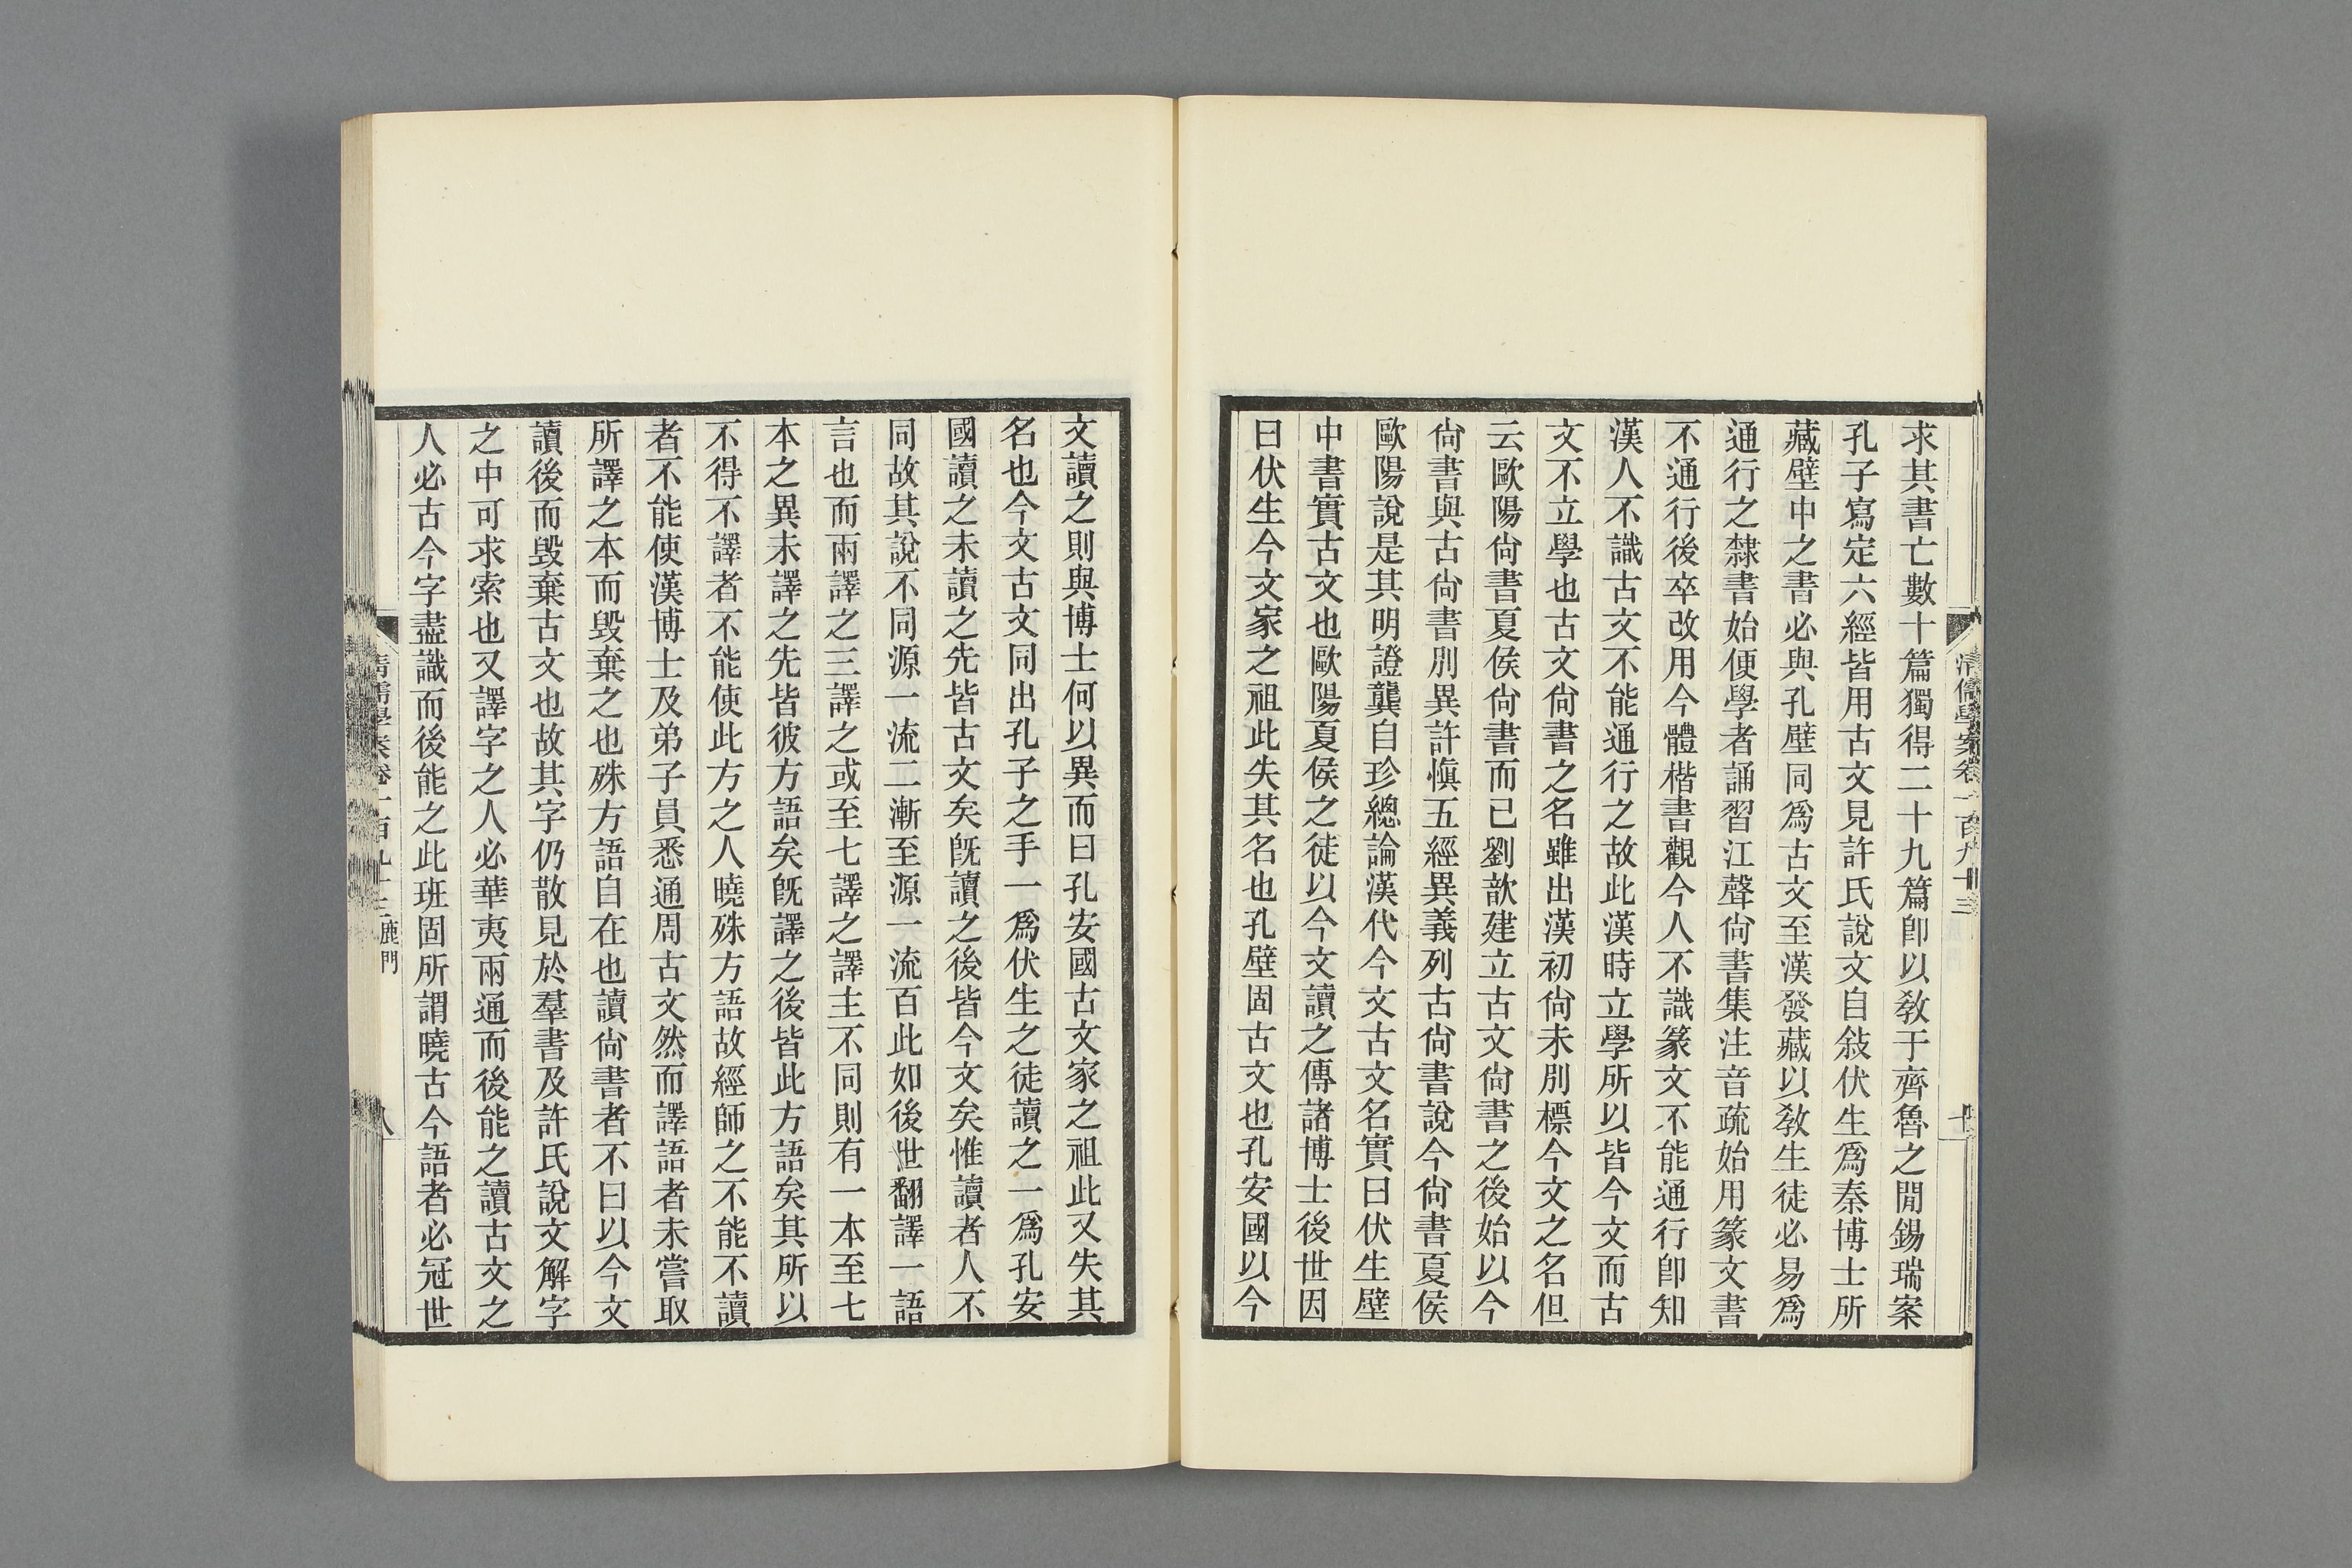 求其書亡數十篇獨得二十九篇卽以敎于齊魯之閒錫瑞案
孔子寫定六經皆用古文見許氏說文自敍伏生爲秦博士所
藏壁中之書必與孔壁同爲古文至漢發藏以敎生徒必易爲
通行之隸書始便學者誦習江聲尙書集注音疏始用篆文書
不通行後卒改用今體楷書觀今人不識篆文不能通行卽知
漢人不識古文不能通行之故此漢時立學所以皆今文而古
文不立學也古文尙書之名雖出漢初尙未別標今文之名但
云歐陽尙書夏侯尙書而已劉歆建立古文尙書之後始以今
尙書與古尙書別異許愼五經異義列古尙書說今尙書夏侯
歐陽說是其明證龔自珍總論漢代今文古文名實曰伏生壁
中書實古文也歐陽夏侯之徒以今文讀之傳諸博士後世因
曰伏生今文家之祖此失其名也孔壁固古文也孔安國以今
文讀之則與博士何以異而曰孔安國古文家之祖此又失其
名也今文古文同出孔子之手一爲伏生之徒讀之一爲孔安
國讀之未讀之先皆古文矣旣讀之後皆今文矣惟讀者人不
同故其說不同源一流二漸至源一流百此如後世翻譯一語
言也而兩譯之三譯之或至七譯之譯主不同則有一本至七
本之異未譯之先皆彼方語矣旣譯之後皆此方語矣其所以
不得不譯者不能使此方之人曉殊方語故經師之不能不讀
者不能使漢博士及弟子員悉通周古文然而譯語者未嘗取
所譯之本而毀棄之也殊方語自在也讀尙書者不曰以今文
讀後而毀棄古文也故其字仍散見於羣書及許氏說文解字
之中可求索也又譯字之人必華夷兩通而後能之讀古文之
人必古今字盡識而後能之此班固所謂曉古今語者必冠世
清儒學案卷一百九十三 鹿門
八